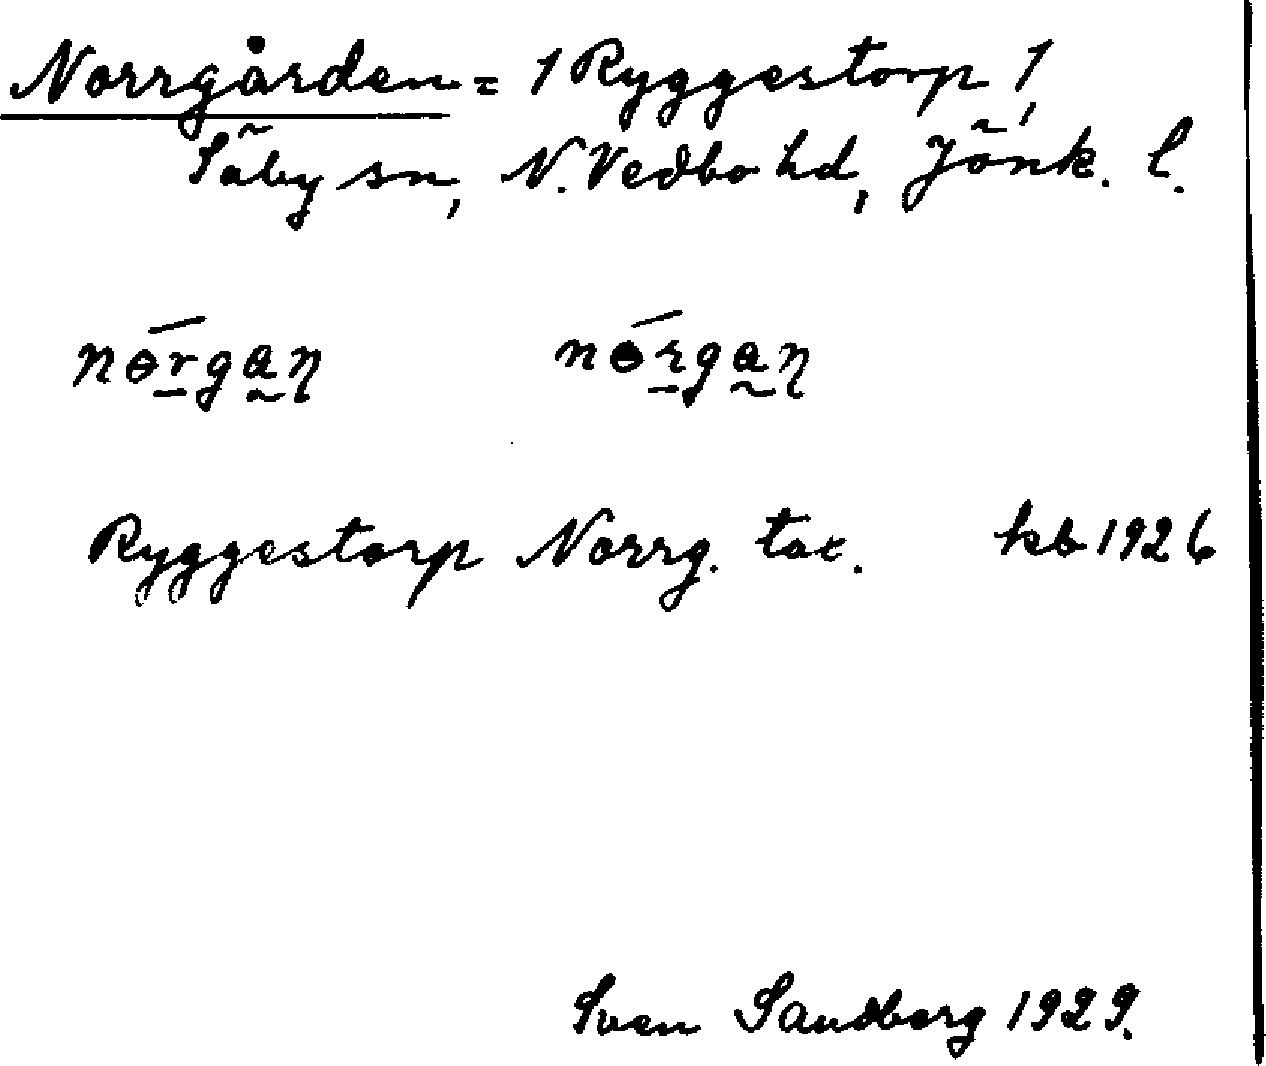 Norrgården = 1 Ryggestorp 1,
Säby sn, N. Vedbo hd, Jönk. l.
nɵrgaɳ nɵrgaɳ
Ryggestorp Norrg. tax. kb 1926
Sven Sandberg 1929.